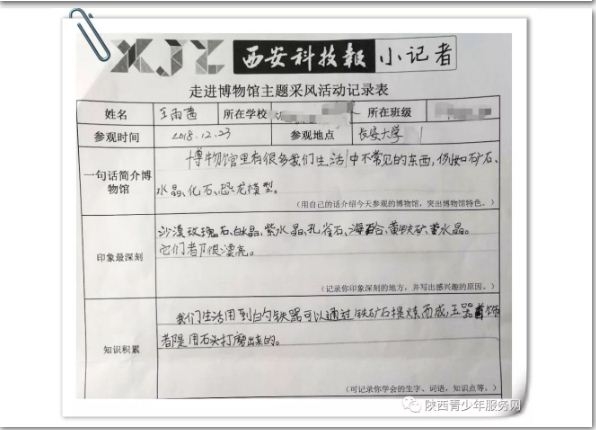 XJZ 西安科技报 小记者
走进博物馆主题采风活动记录表
姓名 王雨茜 所在学校 所在班级
参观时间 2018.12.23 参观地点 长安大学
一句话简介博物馆 博物馆里有很多我们生活中不常见的东西,例如矿石、
水晶、化石、恐龙模型。
(用自己的话介绍今天参观的博物馆,突出博物馆特色。)
印象最深刻 沙漠玫瑰石、白水晶、紫水晶、孔雀石、海百合、黄铁矿、黄水晶。
它们都很漂亮。
(记录你印象深刻的地方,并写出感兴趣的原因。)
知识积累 我们生活用到的铁器可以通过铁矿石提炼而成,玉器首饰
都是用石头打磨出来的。
(可记录你学会的生字、词语,知识点等。)
陕西青少年服务网